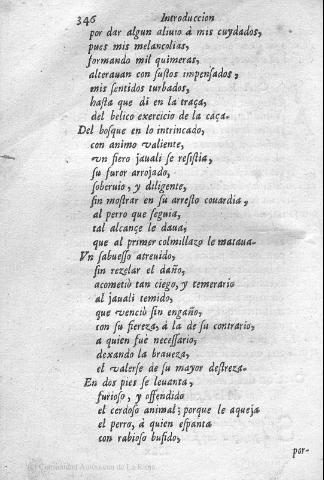 346 Introduccion
por dar algun aliuio à mis cuydados,
pues mis melancolias,
formando mil quimeras,
alterauan con sustos impensados,
mis sentidos turbados,
hasta que di en la traça,
del belico exercicio de la caça.
Del bosque en lo intrincado,
con animo valiente,
vn fiero jauali se resistia,
su furor arrojado,
soberuio, y diligente,
sin mostrar en su arresto couardia,
al perro que seguia,
tal alcançe le daua,
que al primer colmillazo le mataua.
Vn sabuesso atreuido,
sin rezelar el daño,
acometiò tan ciego, y temerario
al jauali temido,
que venciò sin engaño,
con su fiereza, à la de su contrario,
a quien fue necessario,
dexando la braueza,
el valerse de su mayor destreza.
En dos pies se leuanta,
furioso, y offendido
el cerdoso animal; porque le aqueja
el perro, à quien espanta
con rabioso bufido,
por-
(c) Comunidad Autónoma de La Rioja